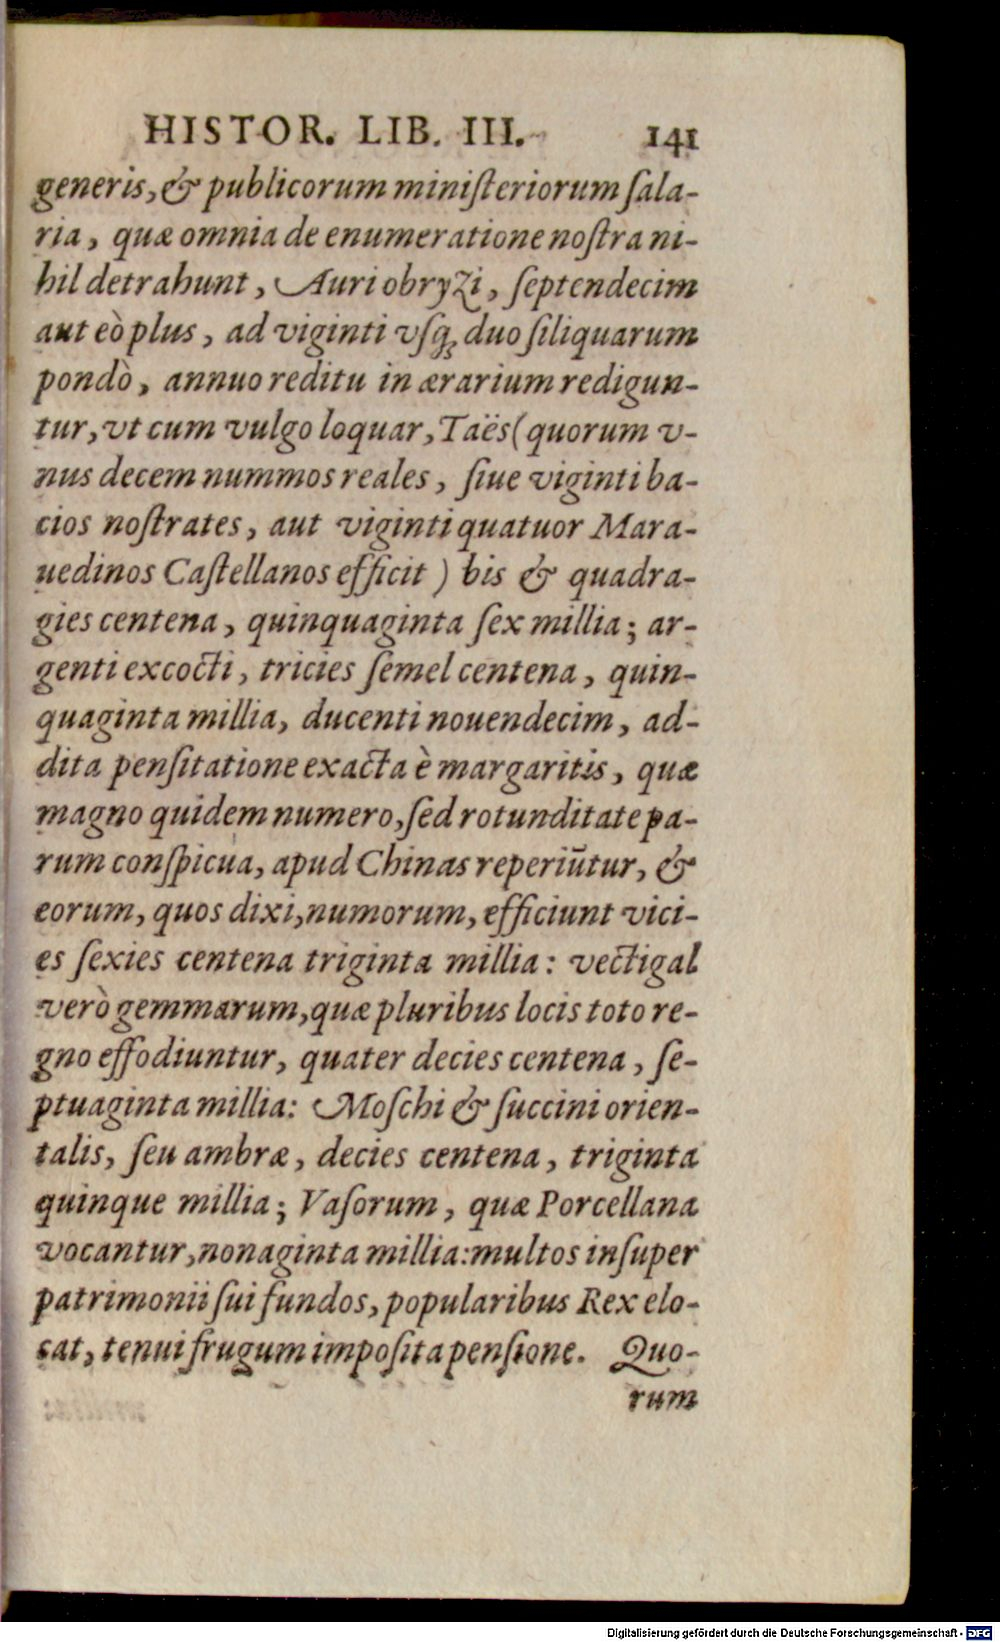 HISTOR. LIB. III. 141
generis, & publicorum miniſteriorum ſala-
ria, quæ omnia de enumeratione noſtra ni-
hil detrahunt, Auri obryzi, ſeptendecim
aut eò plus, ad viginti vſq; duo ſiliquarum
pondò, annuo reditu in ærarium redigun-
tur, vt cum vulgo loquar, Taës (quorum v-
nus decem nummos reales, ſiue viginti ba-
cios noſtrates, aut viginti quatuor Mara-
uedinos Caſtellanos efficit) bis & quadra-
gies centena, quinquaginta ſex millia; ar-
genti excocti, tricies ſemel centena, quin-
quaginta millia, ducenti nouendecim, ad-
dita penſitatione exacta è margaritis, quæ
magno quidem numero, ſed rotunditate pa-
rum conſpicua, apud Chinas reperiūtur, &
eorum, quos dixi, numorum, efficiunt vici-
es ſexies centena triginta millia: vectigal
verò gemmarum, quæ pluribus locis toto re-
gno effodiuntur, quater decies centena, ſe-
ptuaginta millia: Moſchi & ſuccini orien-
talis, ſeu ambræ, decies centena, triginta
quinque millia; Vaſorum, quæ Porcellana
vocantur, nonaginta millia: multos inſuper
patrimonii ſui fundos, popularibus Rex elo-
cat, tenui frugum impoſita penſione. Quo-
rum
Digitalisierung gefördert durch die Deutsche Forschungsgemeinschaft - DFG